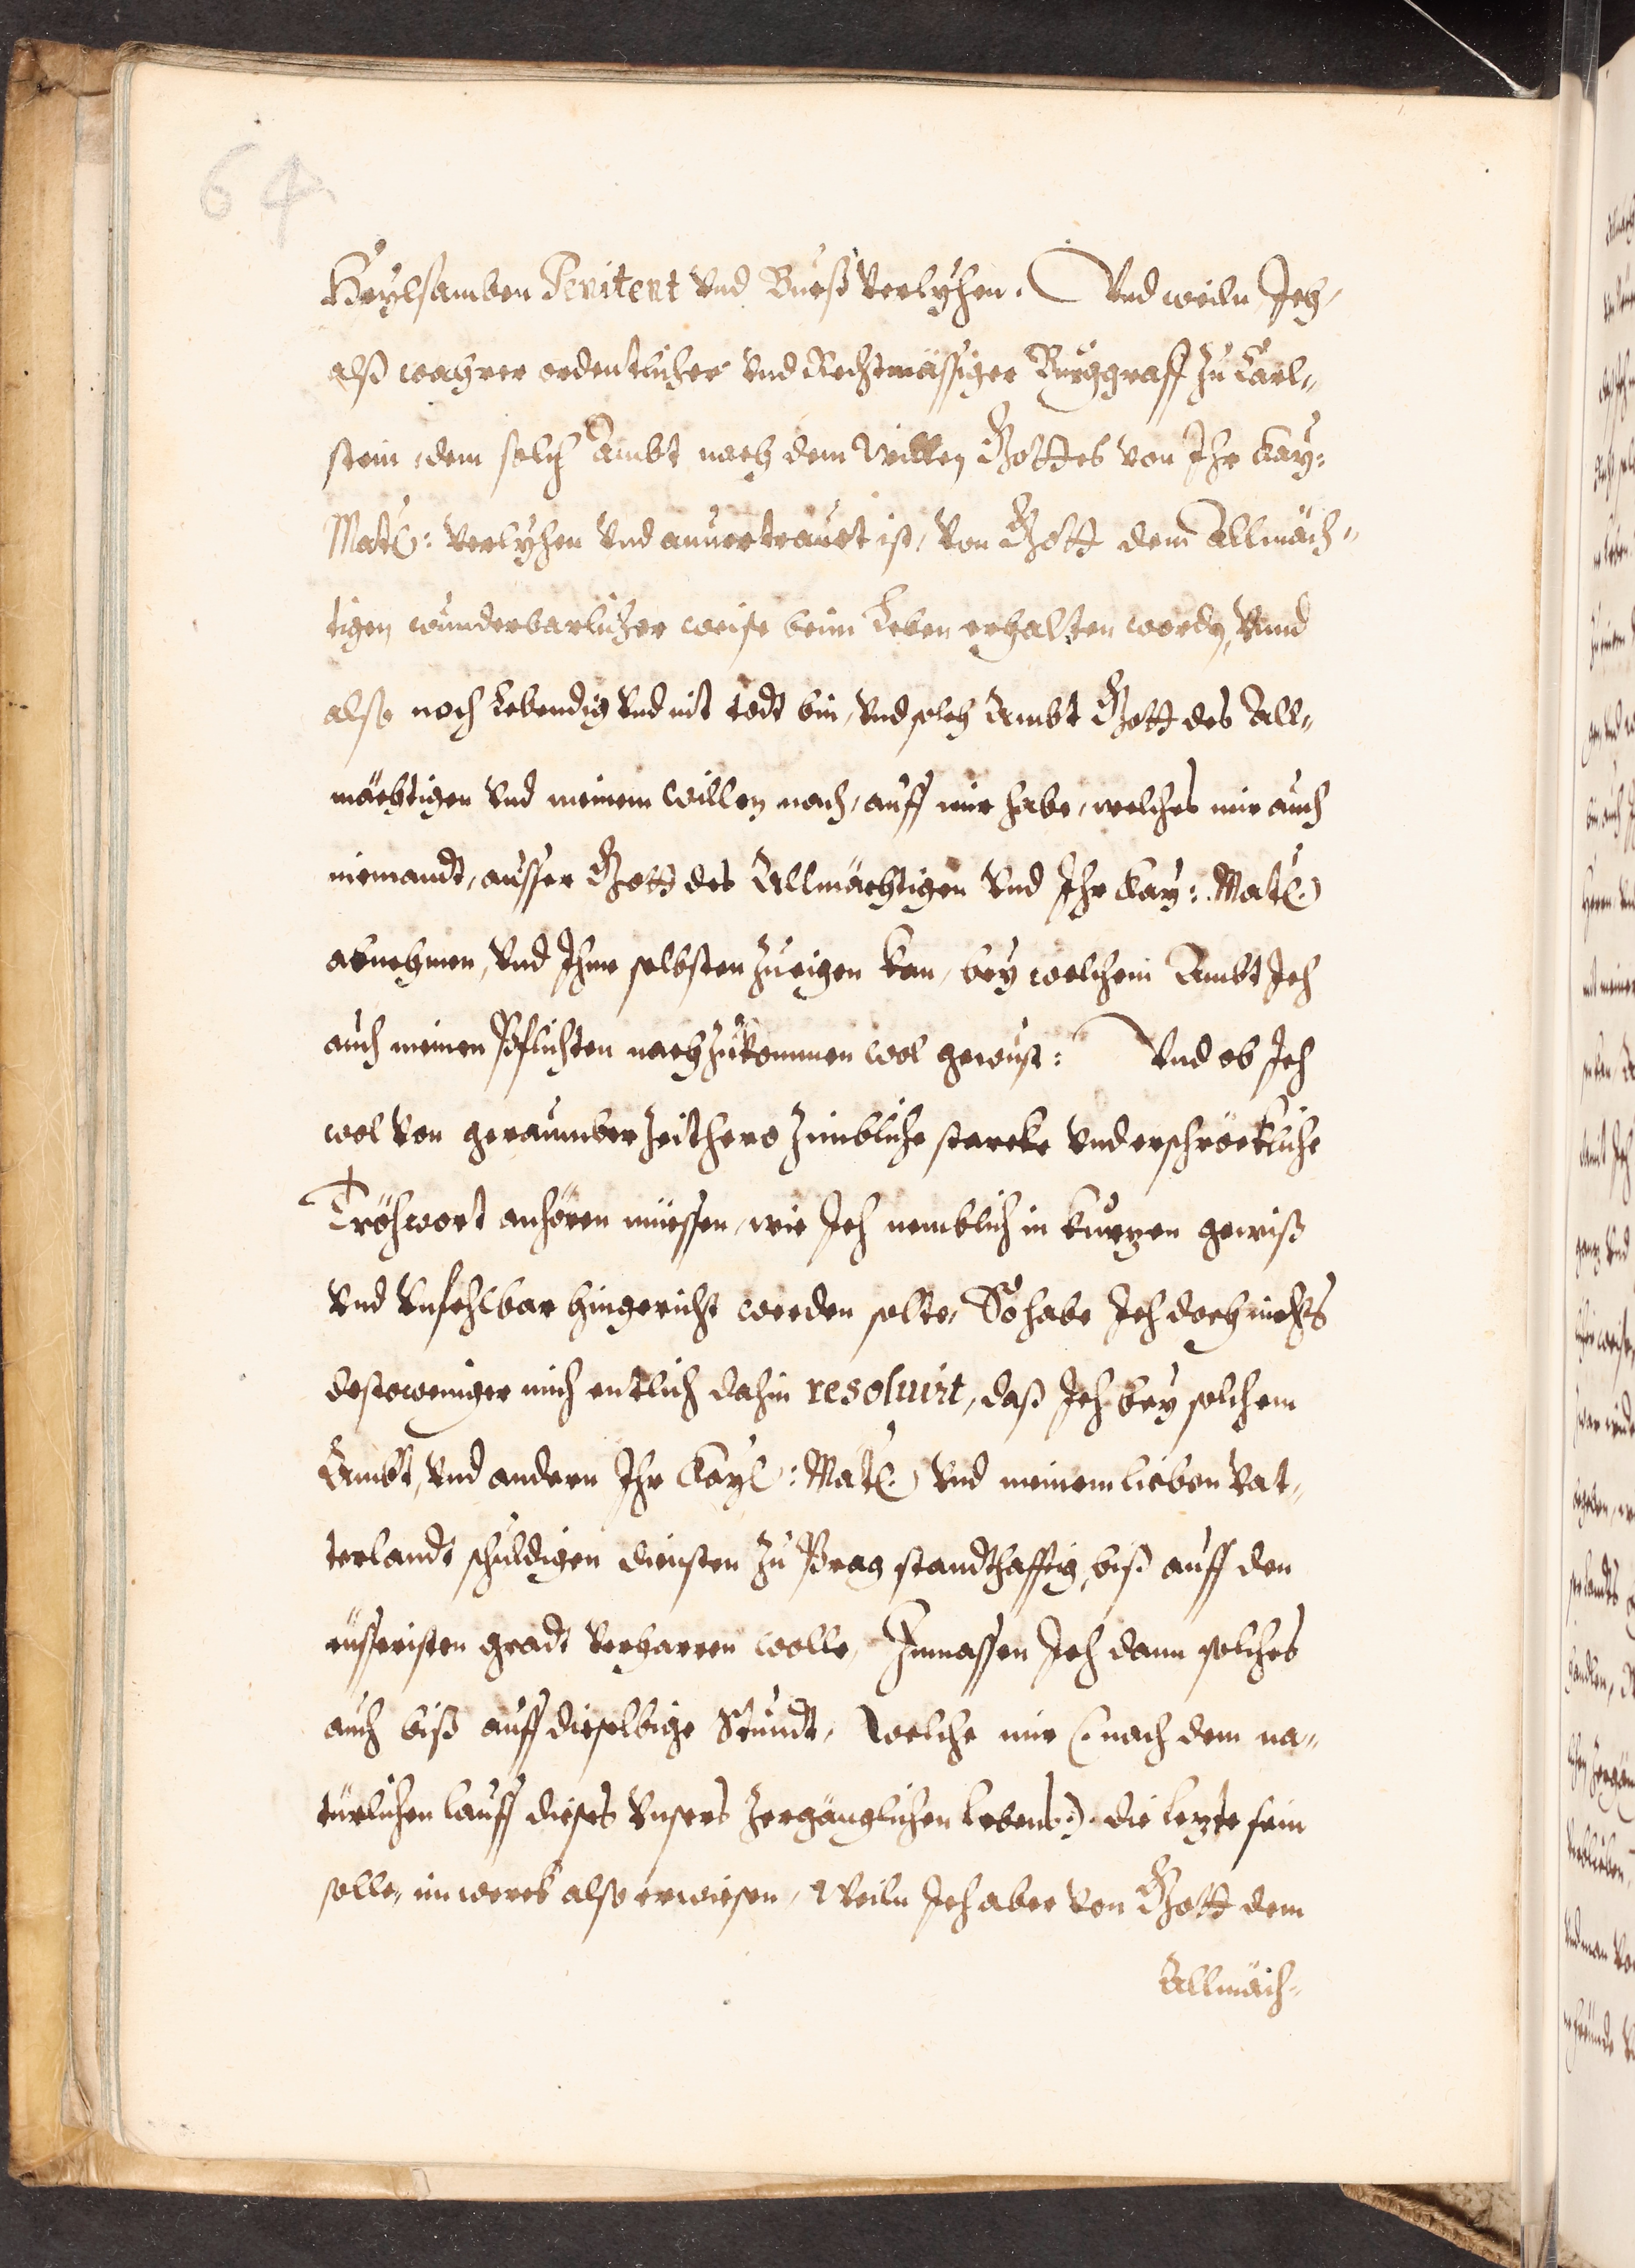 64
Heylsamben Penitent vnd Bueß verlyhen. Vnd weiln Ich,
alß wahrer ordentlicher vnd Rechtmässiger Burggraff zu Carl„
stein, dem solch Ambt nach dem Willen Gottes von Ihr Kay:
Matt: verlyhen vnd anuertrauet ist, von Gott dem Allmäch„
tigen wunderbarlicher weise beim Leben erhalten worden, Vnnd
also noch Lebendig vnd nit todt bin, vnd solch Ambt Gott des All„
mächtigen vnd meinem Willen nach, auff mir habe, welches mir auch
niemandt, ausser Gott des Allmächtigen vnd Ihr Kay: Matt:
abnehmen, vnd Ihme selbsten zueigen kan, bey welchem Ambt Ich
auch meinen Pflichten nachzukommen wol gewust: Vnd ob Ich
wol von geraumber Zeithero zimbliche starcke vnd erschröckliche
Tröhwort anhören müessen, wie Ich nemblich in kurtzen gewiß
vnd vnfehlbar hingericht werden solte, So habe Ich doch nichts
destoweniger mich entlich dahin resoluirt, daß Ich bey solchem
Ambt, vnd andern Ihr Kayl: Matt: vnd meinem lieben Vat„
terlandt schuldigen diensten zu Prag standthafftig, biß auff den
eusseristen gradt verharren wolle, Inmassen Ich dann solches
auch biß auff dieselbige Stundt, Welche mir (: nach dem na„
türlichen lauff dieses vnsers zergänglichen Lebens:) die Letzte sein
solle, im werck also erwiesen, Weiln Ich aber von Gott dem
Allmäch„